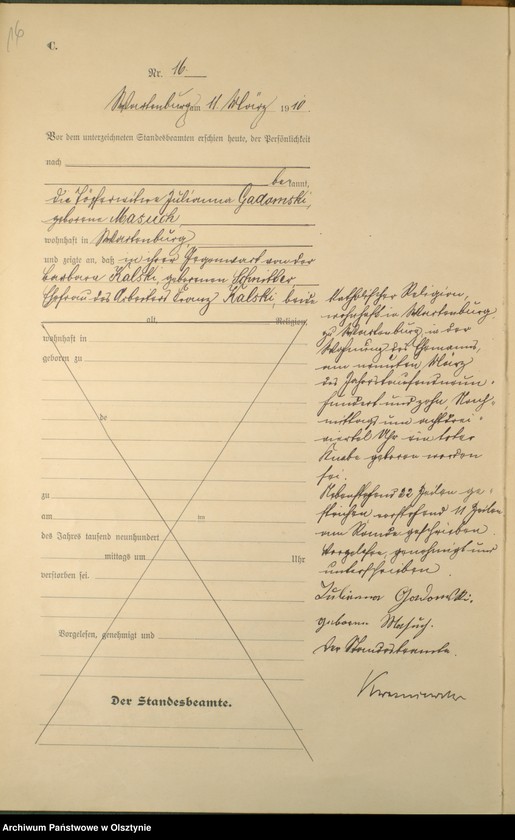 16
C.
Nr. 16
Wartenburg am 11 März 1910.
Vor dem unterzeichneten Standesbeamten erschien heute, der Persönlichkeit
nach
be kannt,
die Töpferwitwe Julianna Gadomski,
geborene Masuch
wohnhaft in Wartenburg,
und zeigte an, daß in ihrer Gegenwart von der
Barbara Kalski, geborenen
Ehefrau des Arbeiters Franz Kalski, beide
alt, Religion,
wohnhaft in
geboren zu
de
zu
am ten
des Jahres tausend neunhundert
mittags um Uhr
verstorben sei.
Vorgelesen, genehmigt und
Der Standesbeamte.
katholischer Religion,
wohnhaft in Wartenburg
zu Wartenburg in der
Wohnung des Ehemanns,
am neunten März
des Jahres tausend neun-
hundert und zehn, Nach-
mittags um acht drei-
viertel Uhr ein toter
Knabe geboren worden
sei.
Nebenstehend 22 Zeilen ge-
strichen vorstehend 11 Zeilen
am Rande geschrieben
Vorgelesen, genehmigt und
unterschrieben
Julianna Gadomski.
geborene Masuch.
Der Standesbeamte.
Archiwum Państwowe w Olsztynie